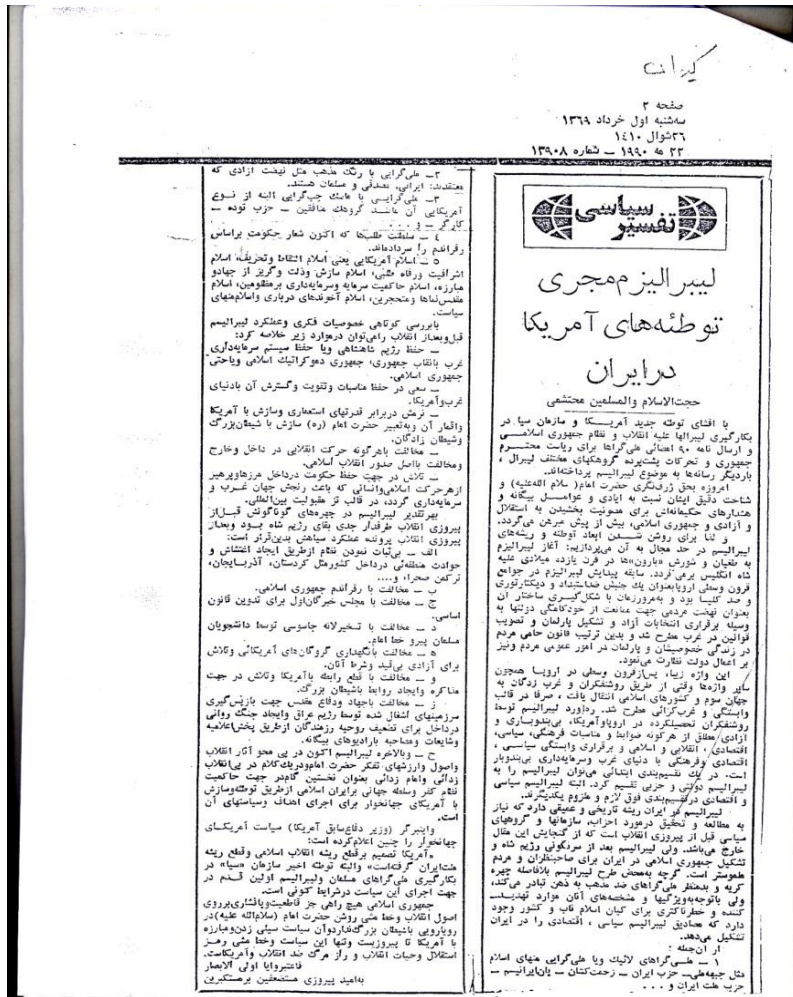 کیهان
صفحه ۲
سه‌شنبه اول خرداد ۱۳۶۹
۲۶ شوال ۱٤۱۰
۲۲ مه ۱۹۹۰ ــ شماره ۱۳۹۰۸
تفسیر سیاسی
لیبرالیزم مجری
توطئه‌های آمریکا
در ایران
حجت‌الاسلام والمسلمین محتشمی
با افشای توطئه جدید آمریـکـا و سازمان سیا در
بکارگیری لیبرالها علیه انقلاب و نظام جمهوری اسلامـی
و ارسال نامه ۹۰ امضائی ملی‌گراها برای ریاست محتـرم
جمهوری و تحرکات پشت‌پرده گروهکهای مختلف لیبرال ،
باردیگر رسانه‌ها به موضوع لیبرالیسم پرداخته‌اند.
امروزه بحق ژرف‌نگری حضرت امام( سلام الله‌علیه) و
شناخت دقیق ایشان نسبت به ایادی و عوامـل بیگانه و
هشدارهای حکیمانه‌اش برای مصونیت بخشیدن به استقلال
و آزادی و جمهوری اسلامی، بیش از پیش مبرهن می‌گردد.
و لذا برای روشن شـدن ابعاد توطئه و ریشه‌های
لیبرالیسم در حد مجال به آن می‌پردازیم: آغاز لیبرالیزم
به طغیان و شورش «بارون»ها در قرن یازده میلادی علیه
شاه انگلیس برمی‌گردد. سابقه پیدایش لیبرالیزم در جوامع
قرون وسطی اروپابعنوان یک جنبش ضداستبداد و دیکتاتوری
و ضد کلیسا بود و به‌مرورزمان با شکل‌گیری ساختار آن
بعنوان نهضت مردمی جهت ممانعت از خودکامگی دولتها به
وسیله برقراری انتخابات آزاد و تشکیل پارلمان و تصویب
قوانین در غرب مطرح شد و بدین ترتیب قانون حامی مردم
در زندگی خصوصیشان و پارلمان در امور عمومی مردم ونیز
بر اعمال دولت نظارت می‌نمود.
این واژه زیبا، پس‌ازقرون وسطی در اروپـا همچون
سایر واژه‌ها وقتی از طریق روشنفکران و غرب زدگان به
جهان سوم و کشورهای اسلامی انتقال یافت ، صرفا در قالب
وابستگی و غرب‌گرائی مطرح شد. ره‌آورد لیبرالیسم توسط
روشنفکران تحصیلکرده در اروپاوآمریکا، بی‌بندوبـاری و
آزادی مطلق از هرگونه ضوابط و مناسبات فرهنگی، سیاسی،
اقتصادی ، انقلابی و اسلامی و برقراری وابستگی سیاسـی ،
اقتصادی وفرهنگی با دنیای غرب وسرمایه‌داری بی‌بندوبار
است. در یک تقسیم‌بندی ابتدائی می‌توان لیبرالیسم را به
لیبرالیسم دولتی و حزبی تقسیم کرد. البته لیبرالیسم سیاسی
و اقتصادی درتقسیم‌بندی فوق لازم و ملزوم یکدیگرند.
لیبرالیسم در ایران ریشه تاریخی و عمیقی دارد که نیاز
به مطالعه و تحقیق درمورد احزاب، سازمانها و گروههای
سیاسی قبل از پیروزی انقلاب است که از گنجایش این مقال
خارج می‌باشد. ولی لیبرالیسم بعد از سرنگونی رژیم شاه و
تشکیل جمهوری اسلامی در ایران برای صاحبنظران و مردم
ملموستر است. گرچه به‌محض طرح لیبرالیسم بلافاصله چهره
کریه و بدمنظر ملی‌گراهای ضد مذهب به ذهن تبادر می‌کند،
ولی باتوجه‌به‌ویژگیها و مشخصه‌های آنان موارد تهدیـد
کننده و خطرناکتری برای کیان اسلام ناب و کشور وجود
دارد که مصادیق لیبرالیسم سیاسی ، اقتصادی را در ایران
تشکیل می‌دهد.
از آن‌جمله :
۱ ــ ملـی‌گراهای لائیک ویا ملی‌گرایی منهای اسلام
مثل جبهه‌ملی‌ــ حزب ایران ــ زحمت‌کشان ــ پان‌ایرانیسم ــ
حزب ملت ایران و . . .
۲ــ ملی‌گرایی با رنگ مذهب مثل نهضت آزادی که
معتقدند: ایرانی، مصدقی و مسلمان هستند.
۳ ــ ملی‌گرایـی با ماسک چپ‌گرایی البته از نـوع
آمریکایی آن مانند گروهک منافقین ــ حزب توده ــ
کارگر ــ و . . .
٤ ــ سلطنت طلب‌ها که اکنون شعار حکومت براساس
رفراندم را سرداده‌اند.
۵ ــ اسلام آمریکایی یعنی اسلام التقاط وتحریف، اسلام
اشرافیت ورفاه طلبی، اسلام سازش وذلت وگریز از جهادو
مبارزه، اسلام حاکمیت سرمایه وسرمایه‌داری برمظلومین، اسلام
مقدس‌نماها ومتحجرین، اسلام آخوندهای درباری واسلام‌منهای
سیاست.
بابررسی کوتاهی خصوصیات فکری وعملکرد لیبرالیسم
قبل‌وبعداز انقلاب رامی‌توان درموارد زیر خلاصه کرد:
ــ حفظ رژیم شاهنشاهی ویا حفظ سیستم سرمایه‌داری
غرب بانقاب جمهوری، جمهوری دموکراتیک اسلامی ویاحتی
جمهوری اسلامی.
ــ سعی در حفظ مناسبات وتقویت وگسترش آن بادنیای
غرب‌وآمریکا.
ــ نرمش دربرابر قدرتهای استعماری وسازش با آمریکا
واقمار آن وبه‌تعبیر حضرت امام (ره) سازش با شیطان‌بزرگ
وشیطان زادگان.
ــ مخالفت باهرگونه حرکت انقلابی در داخل وخارج
ومخالفت بااصل صدور انقلاب اسلامی.
ــ تلاش در جهت حفظ حکومت درداخل مرزهاوپرهیز
ازهرحرکت اسلامی‌وانسانی که باعث رنجش جهان غـرب و
سرمایه‌داری گردد، در قالب تز مقبولیت بین‌المللی.
بهرتقدیر لیبرالیسم در چهره‌های گوناگونش قبـل‌از
پیروزی انقلاب طرفدار جدی بقای رژیم شاه بـود وبعداز
پیروزی انقلاب پرونده عملکرد سیاهش بدین‌قرار است:
الف ــ بی‌ثبات نمودن نظام ازطریق ایجاد اغتشاش و
حوادث منطقه‌ئی درداخل کشورمثل کردستان، آذربـایجان،
ترکمن صحرا، و....
ب ــ مخالفت با رفراندم جمهوری اسلامی.
ج ــ مخالفت با مجلس خبرگان‌اول برای تدوین قانون
اساسی.
د ــ مخالفت با تسخیرلانه جاسوسی توسط دانشجویان
مسلمان پیرو خط امام.
ه ــ مخالفت بانگهداری گروگان‌های آمریکائی وتلاش
برای آزادی بی‌قید وشرط آنان.
و ــ مخالفت با قطع رابطه باآمریکا وتلاش در جهت
مذاکره وایجاد روابط باشیطان بزرگ.
ز ــ مخالفت باجهاد ودفاع مقدس جهت بازپس‌گیری
سرزمینهای اشغال شده توسط رژیم عراق وایجاد جنگ روانی
درداخل برای تضعیف روحیه رزمندگان ازطریق پخش‌اعلامیه
وشایعات ومصاحبه بارادیوهای بیگانه.
ح ــ وبالاخره لیبرالیسم اکنون در پی محو آثار انقلاب
واصول وارزشهای تفکر حضرت امام‌ودریک‌کلام در پی‌انقلاب
زدائی وامام زدائی بعنوان نخستین گام‌در جهت حاکمیت
نظام کفر وسلطه جهانی برایران اسلامی ازطریق توطئه‌وسازش
با آمریکای جهانخوار برای اجرای اهداف وسیاستهای آن
است.
واینبرگر (وزیر دفاع‌سابق آمریکا) سیاست آمریکـای
جهانخوار را چنین اعلام‌کرده است:
«آمریکا تصمیم برقطع ریشه انقلاب اسلامی وقطع ریشه
ملت‌ایران گرفته‌است» والبته توطئه اخیر سازمان «سیا» در
بکارگیری ملی‌گراهای مسلمان ولیبرالیسم اولین قـدم در
جهت اجرای این سیاست درشرایط کنونی است.
جمهوری اسلامی هیچ راهی جز قاطعیت‌وپافشاری‌برروی
اصول انقلاب وخط مشی روشن حضرت امام (سلام‌الله علیه)در
رویارویی باشیطان بزرگ‌نداردوآن سیاست سیلی زدن‌ومبارزه
با آمریکا تا پیروزیست وتنها این سیاست وخط مشی رمـز
استقلال وحیات انقلاب و راز مرگ ضد انقلاب وآمریکاست.
فاعتبروایا اولی الابصار
به‌امید پیروزی مستضعفین برمستکبرین